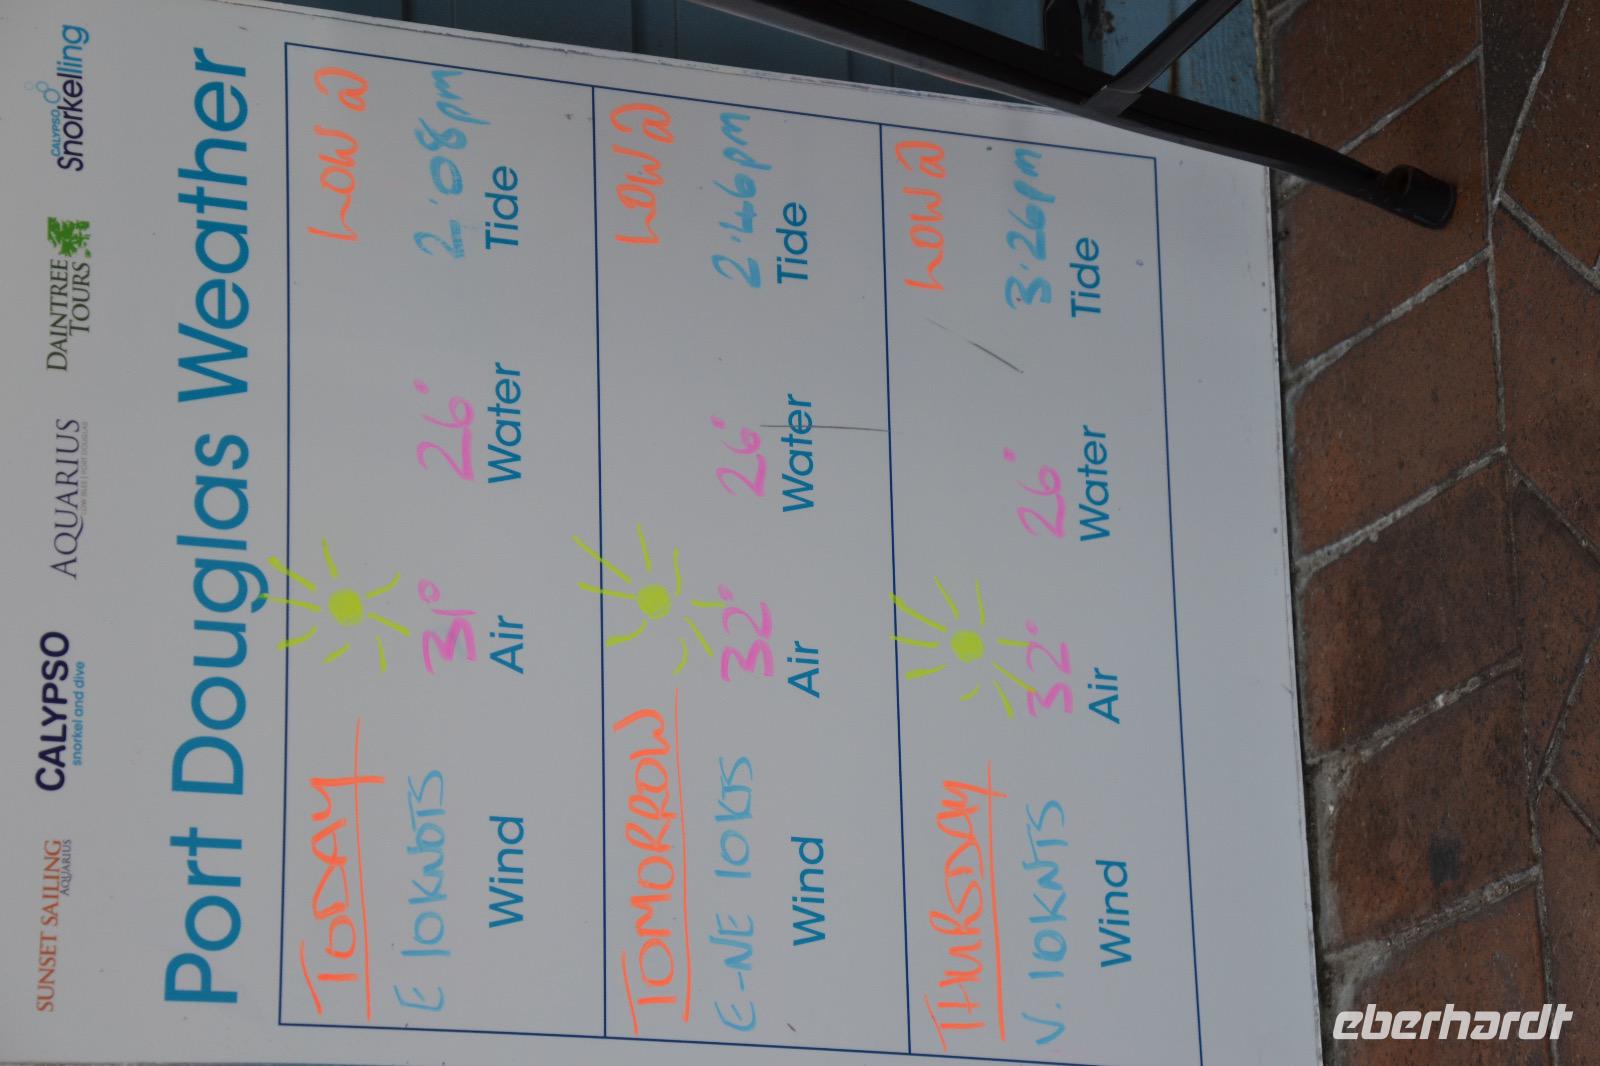 SUNSET SAILING
AQUARIUS
CALYPSO
snorkel and dive
AQUARIUS
LOW ISLES | PORT DOUGLAS
DAINTREE
TOURS
CALYPSO
Snorkelling
Port Douglas Weather
TODAY LOW @
E 10KNOTS 31° 26° 2:08pm
Wind Air Water Tide
TOMORROW LOW @
E-NE 10KTS 32° 26° 2.46pm
Wind Air Water Tide
THURSDAY LOW @
V. 10KNTS 32° 26° 3.26pm
Wind Air Water Tide
eberhardt